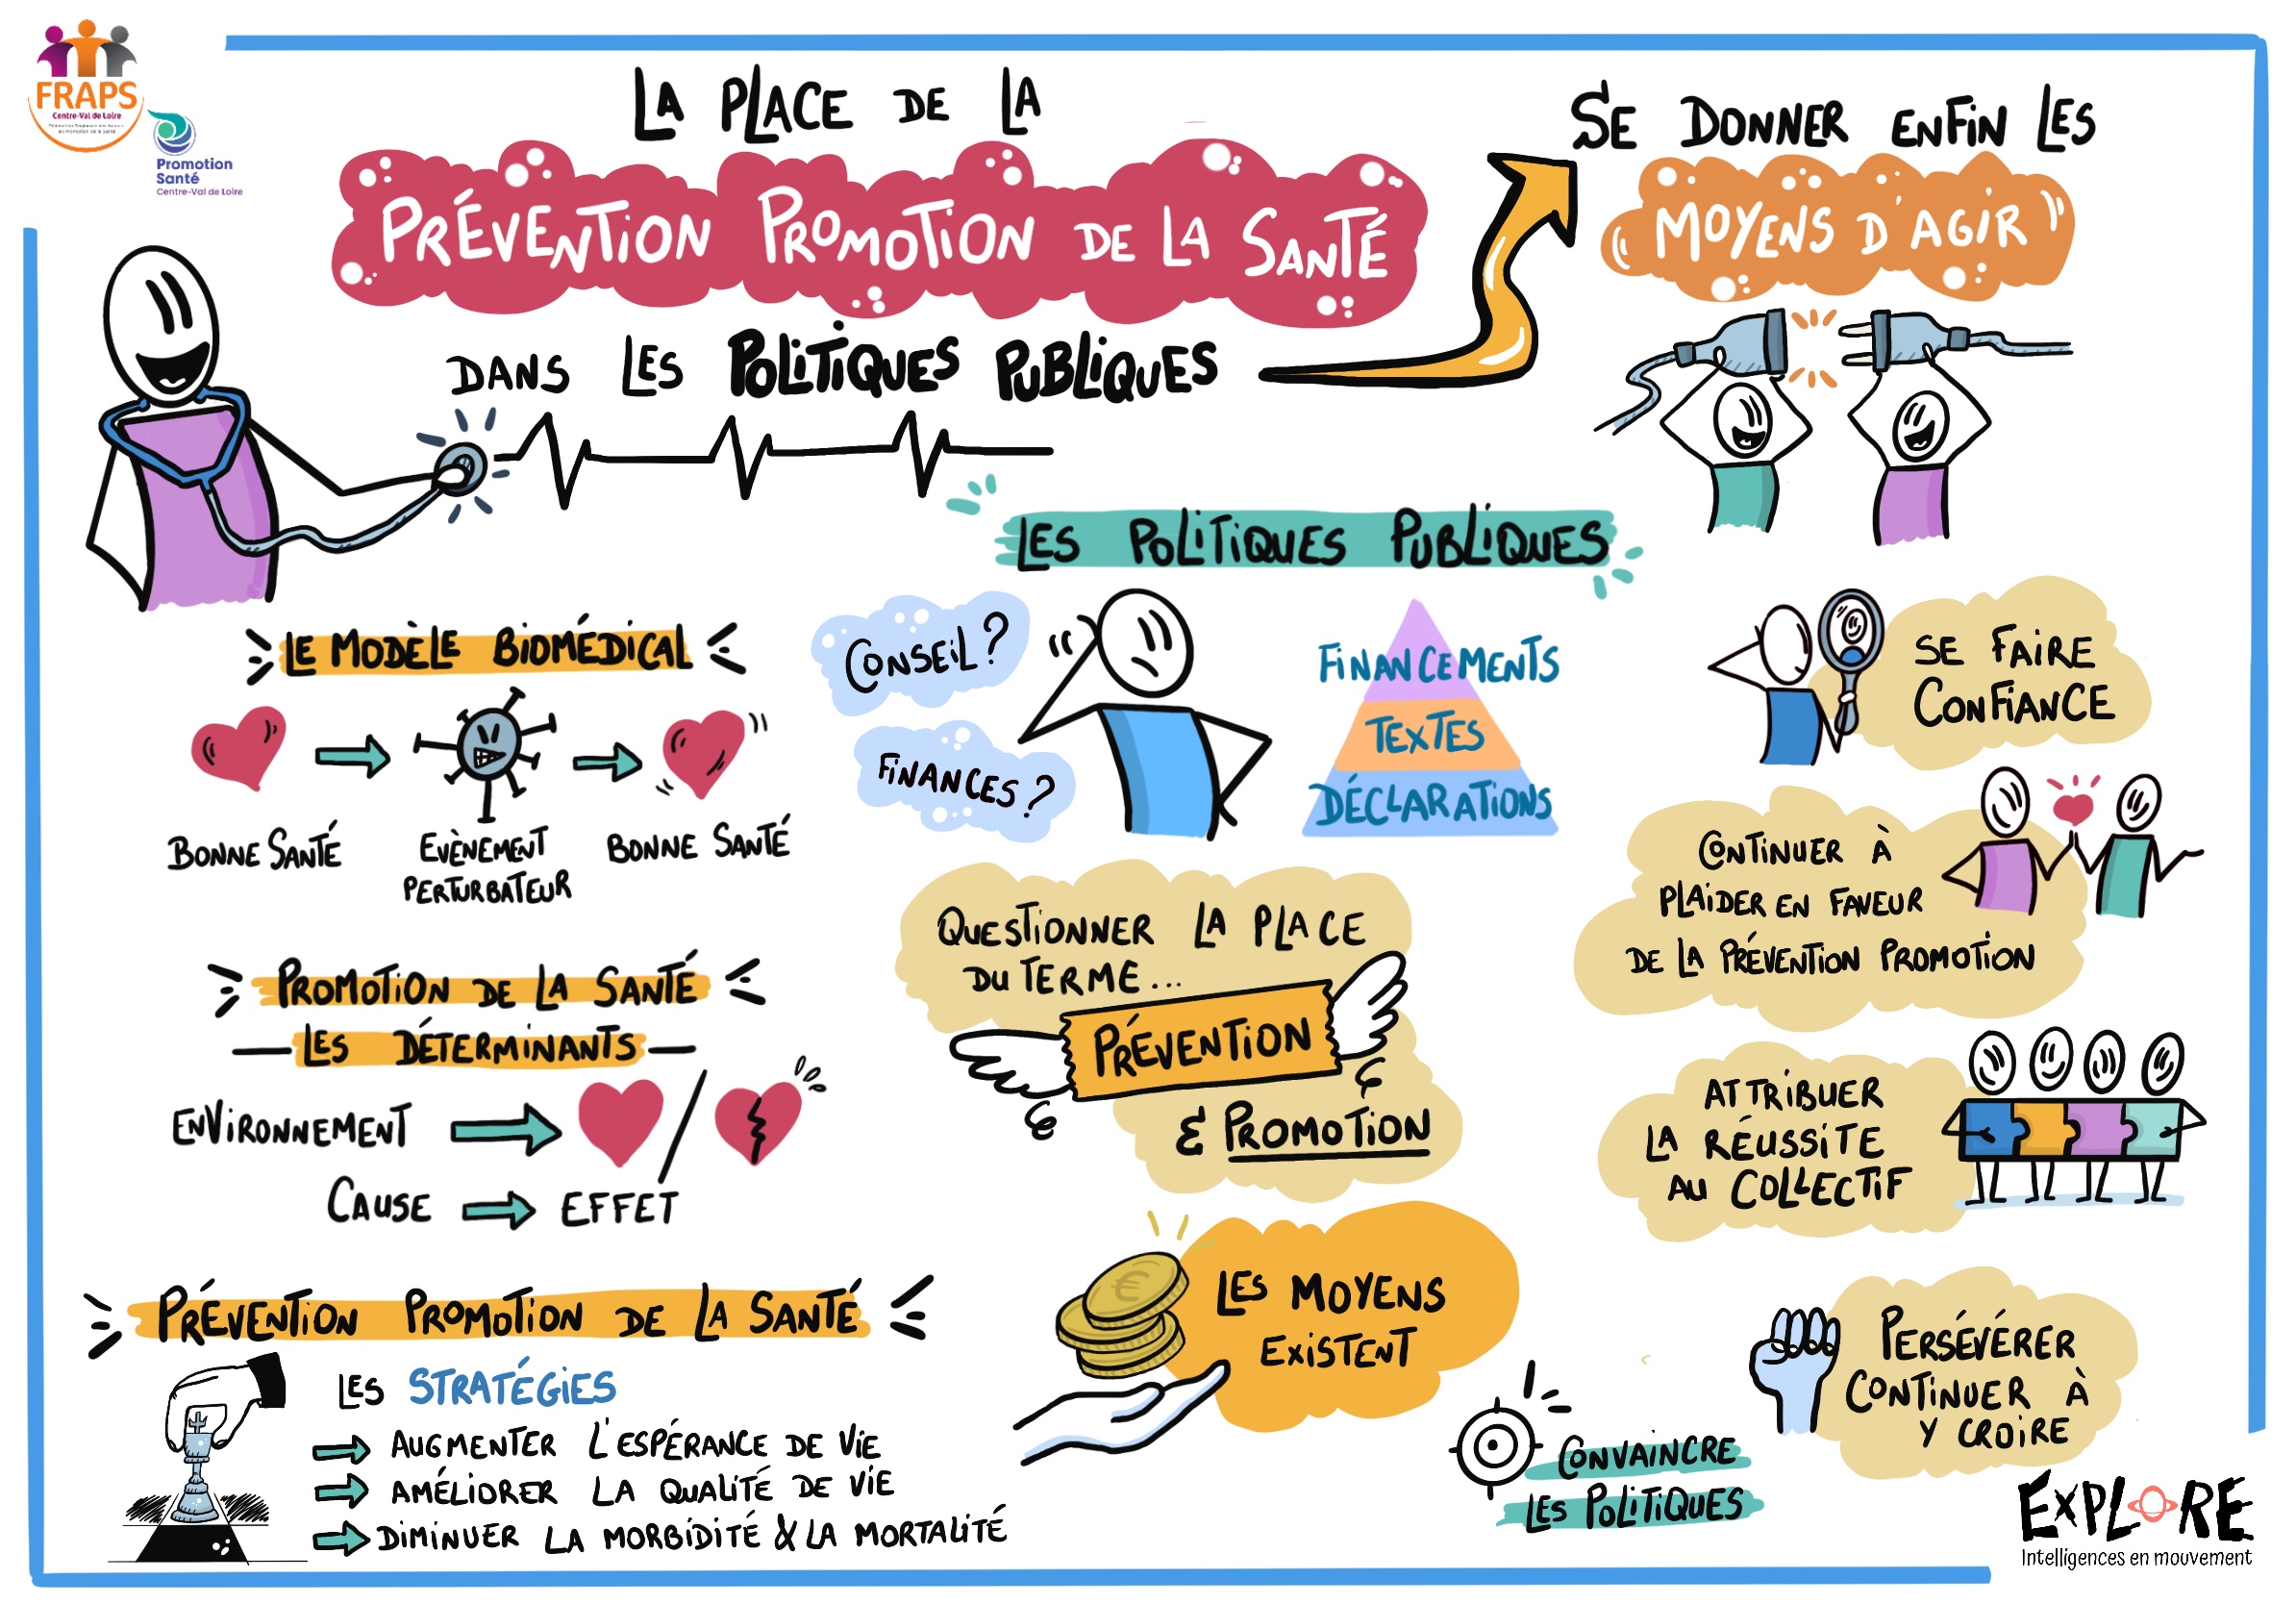 FRAPS
Centre-Val de Loire
Promotion
Santé
Centre-Val de Loire
LA PLACE DE LA
PRÉVENTION PROMOTION DE LA SANTÉ
DANS LES POLITIQUES PUBLIQUES
SE DONNER ENFIN LES
MOYENS D'AGIR
LE MODÈLE BIOMÉDICAL
BONNE SANTÉ
EVÈNEMENT
PERTURBATEUR
BONNE SANTÉ
PROMOTION DE LA SANTÉ
LES DÉTERMINANTS
ENVIRONNEMENT
CAUSE
EFFET
PRÉVENTION PROMOTION DE LA SANTÉ
LES STRATÉGIES
AUGMENTER L'ESPÉRANCE DE VIE
AMÉLIORER LA QUALITÉ DE VIE
DIMINUER LA MORBIDITÉ & LA MORTALITÉ
LES POLITIQUES PUBLIQUES
CONSEIL ?
FINANCES ?
FINANCEMENTS
TEXTES
DÉCLARATIONS
QUESTIONNER LA PLACE
DU TERME...
PRÉVENTION
& PROMOTION
€
LES MOYENS
EXISTENT
CONVAINCRE
LES POLITIQUES
SE FAIRE
CONFIANCE
CONTINUER À
PLAIDER EN FAVEUR
DE LA PRÉVENTION PROMOTION
ATTRIBUER
LA RÉUSSITE
AU COLLECTIF
PERSÉVÉRER
CONTINUER À
Y CROIRE
EXPLORE
Intelligences en mouvement